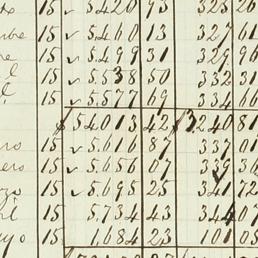 15 ✓ 5420 95 325 26
15 ✓ 5460 13 327 61
15 ✓ 5499 31 329 96
15 ✓ 5538 50 332 31
15 ✓ 5577 69 334 66
$54013 42 $3240 81
15 ✓ 5616 87 337 01
15 ✓ 5656 07 339 36
15 ✓ 5695 25 341 72
15 5,734 43 344 07
15 1,684 23 101 05